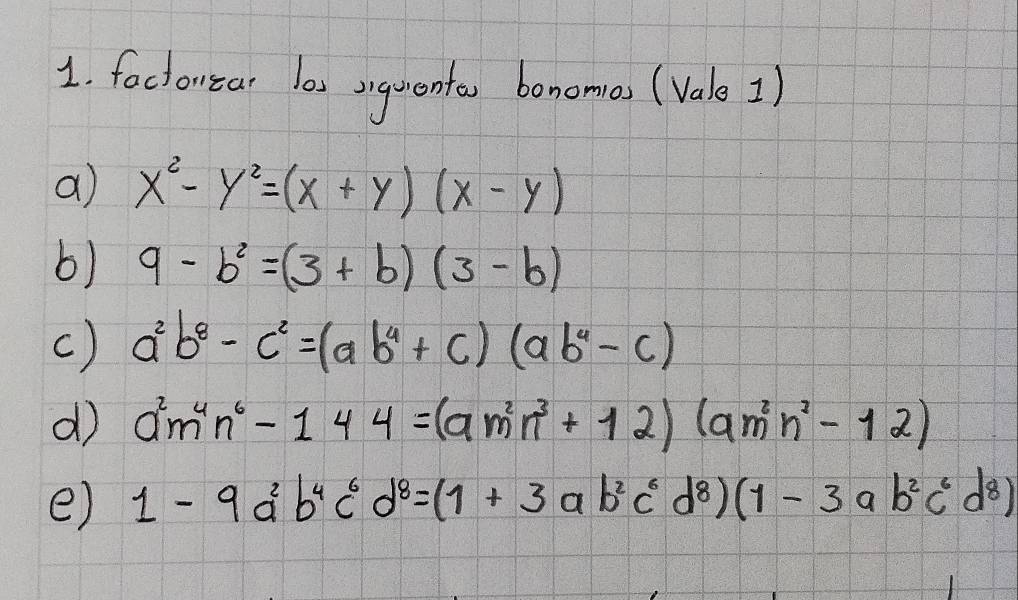 1. factorizar los siguientes bonomios (Vale 1)
a) x² - y² = (x + y) (x - y)
b) 9 - b² = (3 + b) (3 - b)
c) a²b⁸ - c² = (ab⁴ + c) (ab⁴ - c)
d) a²m⁴n⁶ - 144 = (am²n³ + 12) (am²n² - 12)
e) 1 - 9a²b⁴c⁶d⁸ = (1 + 3ab²c⁶d⁸)(1 - 3ab²c⁶d⁸)